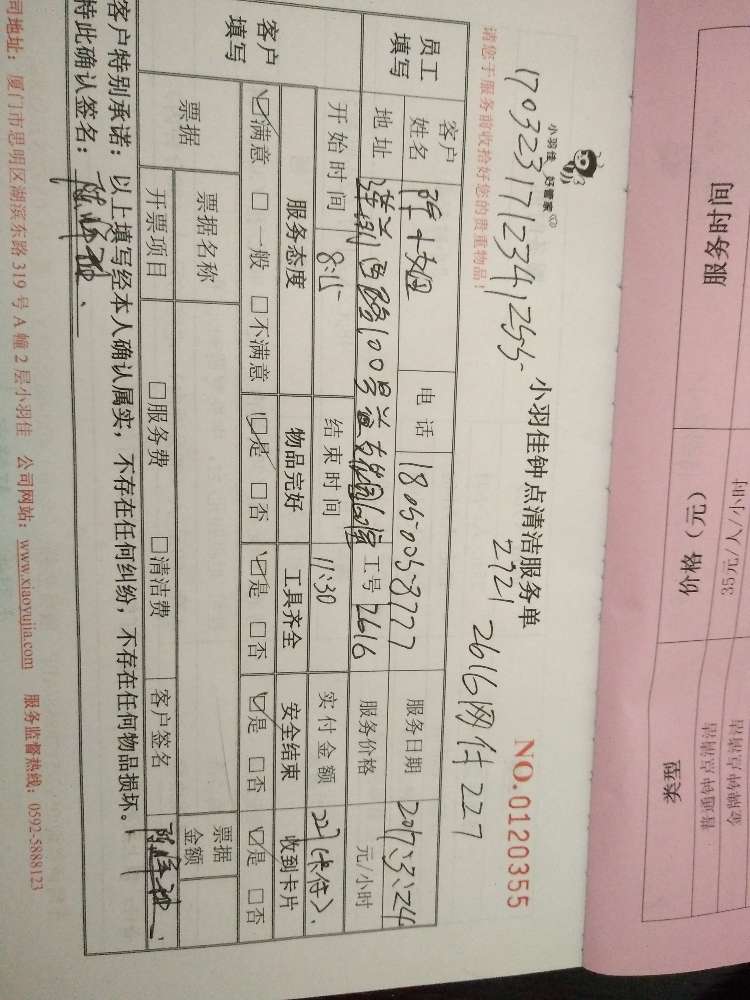 小羽佳 好管家
小羽佳钟点清洁服务单
NO.0120355
17032317123412555
2721 2616网付227
请您于服务前收拾好您的贵重物品!
员工填写
客户姓名
电话 18050058777
服务日期 2017.3.24
地址
工号 2616
服务价格 元/小时
开始时间 8:15
结束时间 11:30
实付金额 227(卡付).
客户填写
服务态度 物品完好 工具齐全 安全结束 收到卡片
☑满意 □一般 □不满意 ☑是 □否 ☑是 □否 ☑是 □否 ☑是 □否
票据 票据名称 票据金额
开票项目 □服务费 □清洁费 客户签名
客户特别承诺:以上填写经本人确认属实,不存在任何纠纷,不存在任何物品损坏。
特此确认签名:
司地址:厦门市思明区湖滨东路319号A幢2层小羽佳 公司网站:www.xiaoyujia.com 服务监督热线:0592-5888123
服务时间
价格(元)
35元/人/小时
类型